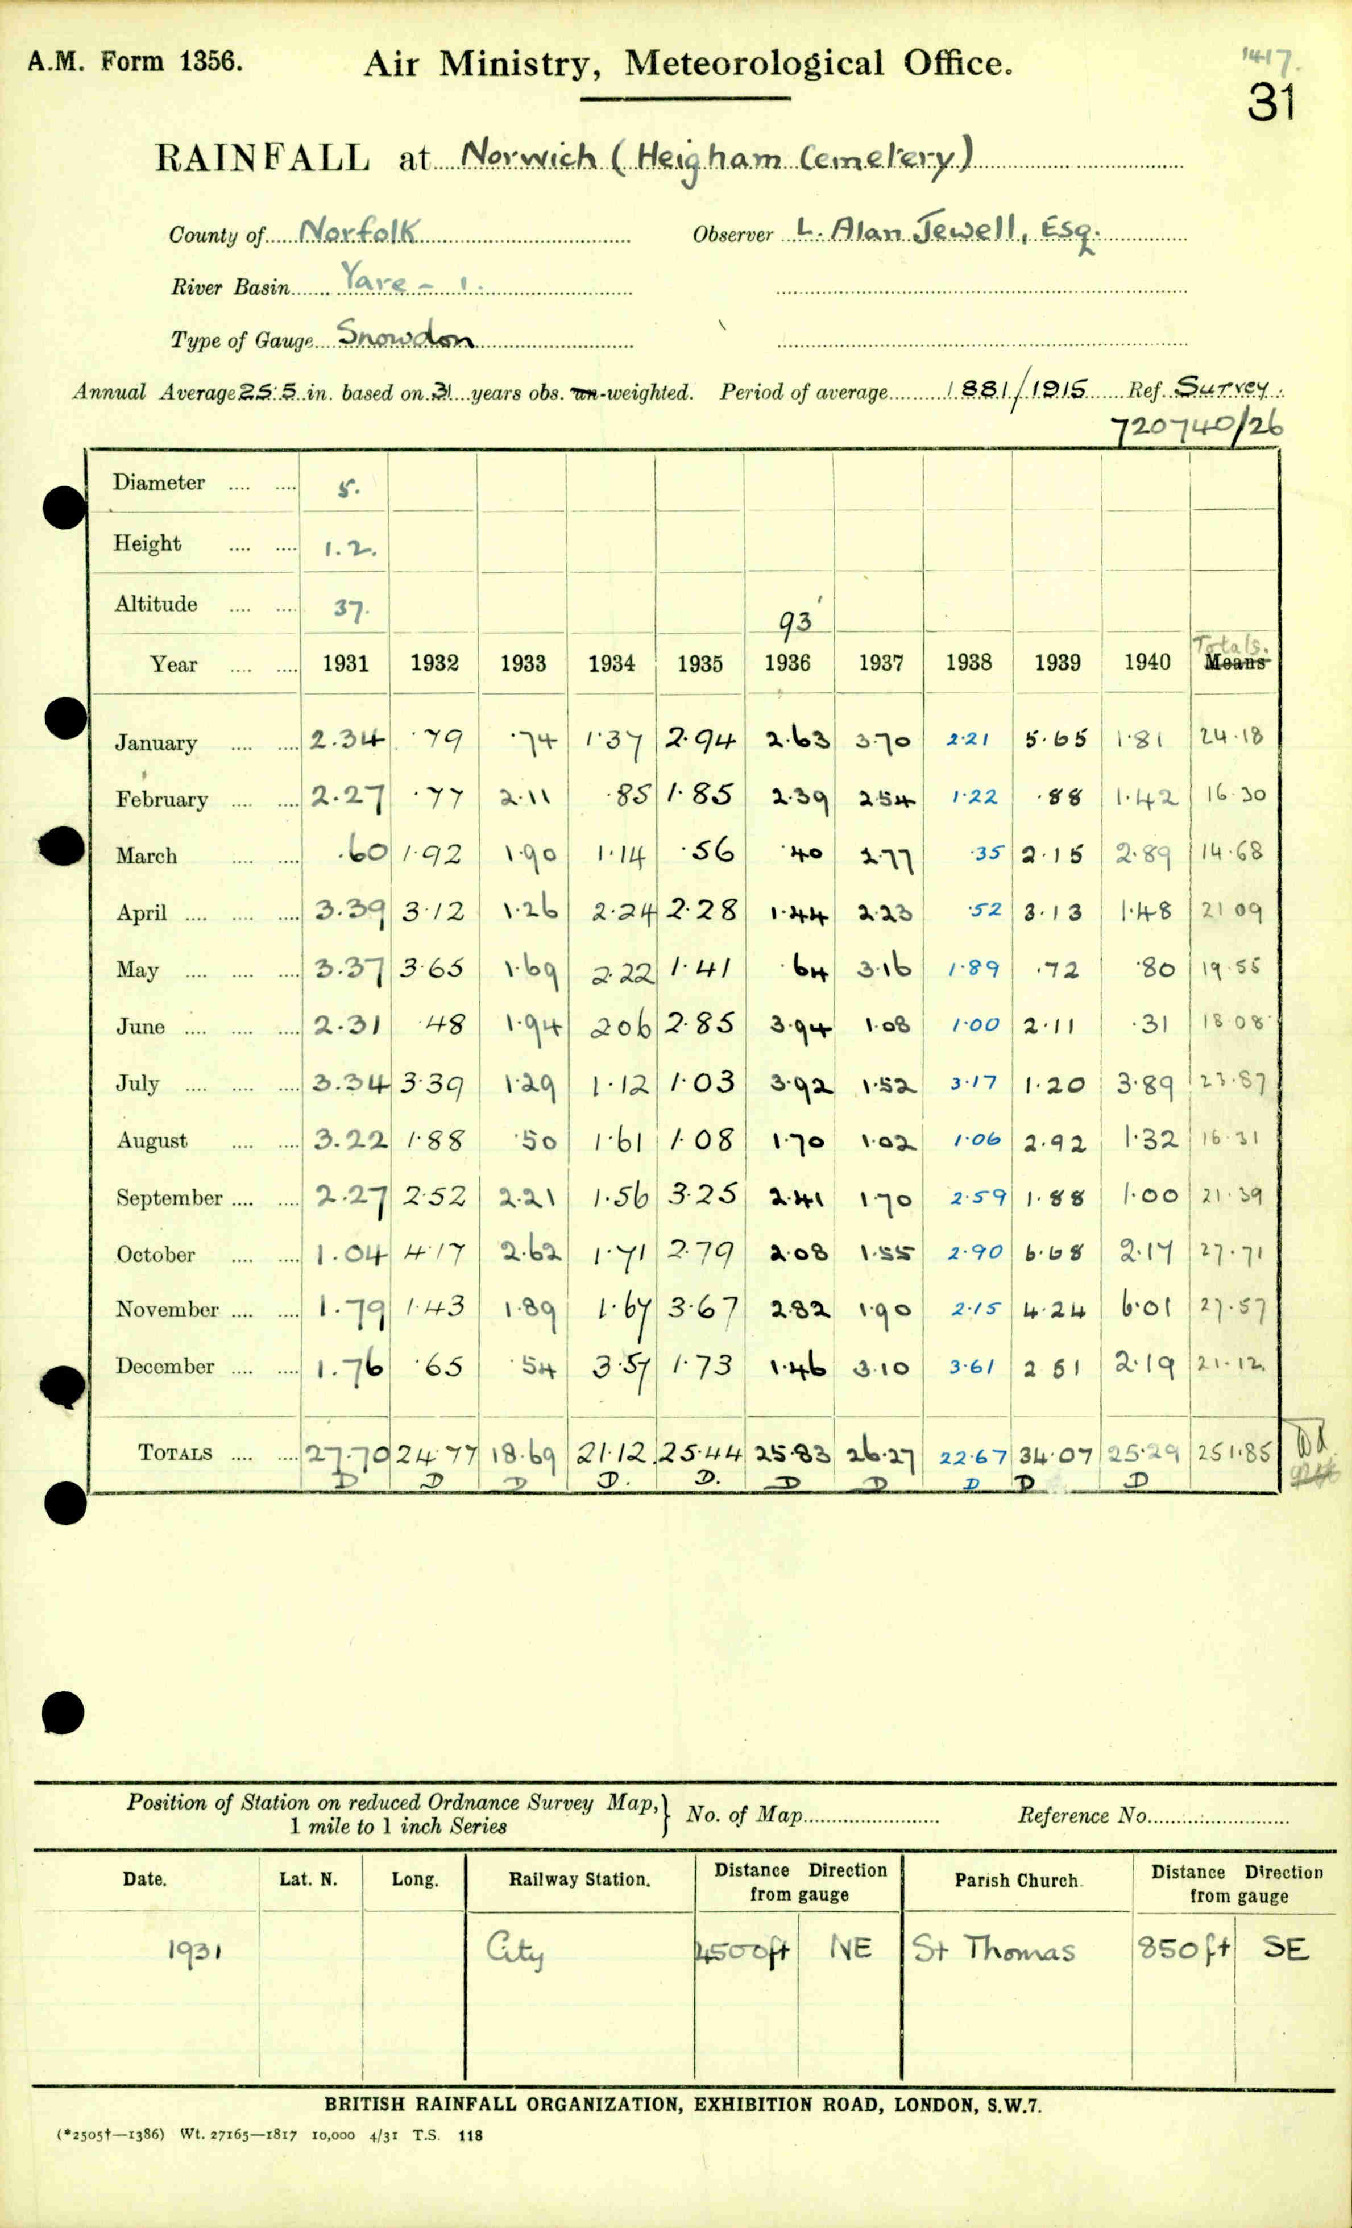 A.M. Form 1356. Air Ministry, Meteorological Office. 1417.
31
RAINFALL at Norwich (Heigham Cemetery)
County of Norfolk Observer L. Alan Jewell, Esq.
River Basin Yare - 1.
Type of Gauge Snowdon
Annual Average 25.5 in. based on 31 years obs. un-weighted. Period of average 1881/1915 Ref. Survey.
720740/26
Diameter 5.
Height 1.2.
Altitude 37. 93'
Totals.
Year 1931 1932 1933 1934 1935 1936 1937 1938 1939 1940 Means
January 2.34 .79 .74 1.37 2.94 2.63 3.70 2.21 5.65 1.81 24.18
February 2.27 .77 2.11 .85 1.85 2.39 2.54 1.22 .88 1.42 16.30
March .60 1.92 1.90 1.14 .56 .40 2.77 .35 2.15 2.89 14.68
April 3.39 3.12 1.26 2.24 2.28 1.44 2.23 .52 3.13 1.48 21.09
May 3.37 3.65 1.69 2.22 1.41 .64 3.16 1.89 .72 .80 19.55
June 2.31 .48 1.94 2.06 2.85 3.94 1.08 1.00 2.11 .31 18.08
July 3.34 3.39 1.29 1.12 1.03 3.92 1.52 3.17 1.20 3.89 23.87
August 3.22 1.88 .50 1.61 1.08 1.70 1.02 1.06 2.92 1.32 16.31
September 2.27 2.52 2.21 1.56 3.25 2.41 1.70 2.59 1.88 1.00 21.39
October 1.04 4.17 2.62 1.71 2.79 2.08 1.55 2.90 6.68 2.17 27.71
November 1.79 1.43 1.89 1.67 3.67 2.82 1.90 2.15 4.24 6.01 27.57
December 1.76 .65 .54 3.57 1.73 1.46 3.10 3.61 2.51 2.19 21.12
TOTALS 27.70 24.77 18.69 21.12 25.44 25.83 26.27 22.67 34.07 25.29 251.85
D D D D. D. D D D D D
Position of Station on reduced Ordnance Survey Map, No. of Map Reference No.
1 mile to 1 inch Series
Date. Lat. N. Long. Railway Station. Distance Direction from gauge Parish Church. Distance Direction from gauge
1931 City 4500ft NE St Thomas 850ft SE
BRITISH RAINFALL ORGANIZATION, EXHIBITION ROAD, LONDON, S.W.7.
(*2505†—1386) Wt. 27165—1817 10,000 4/31 T.S. 118